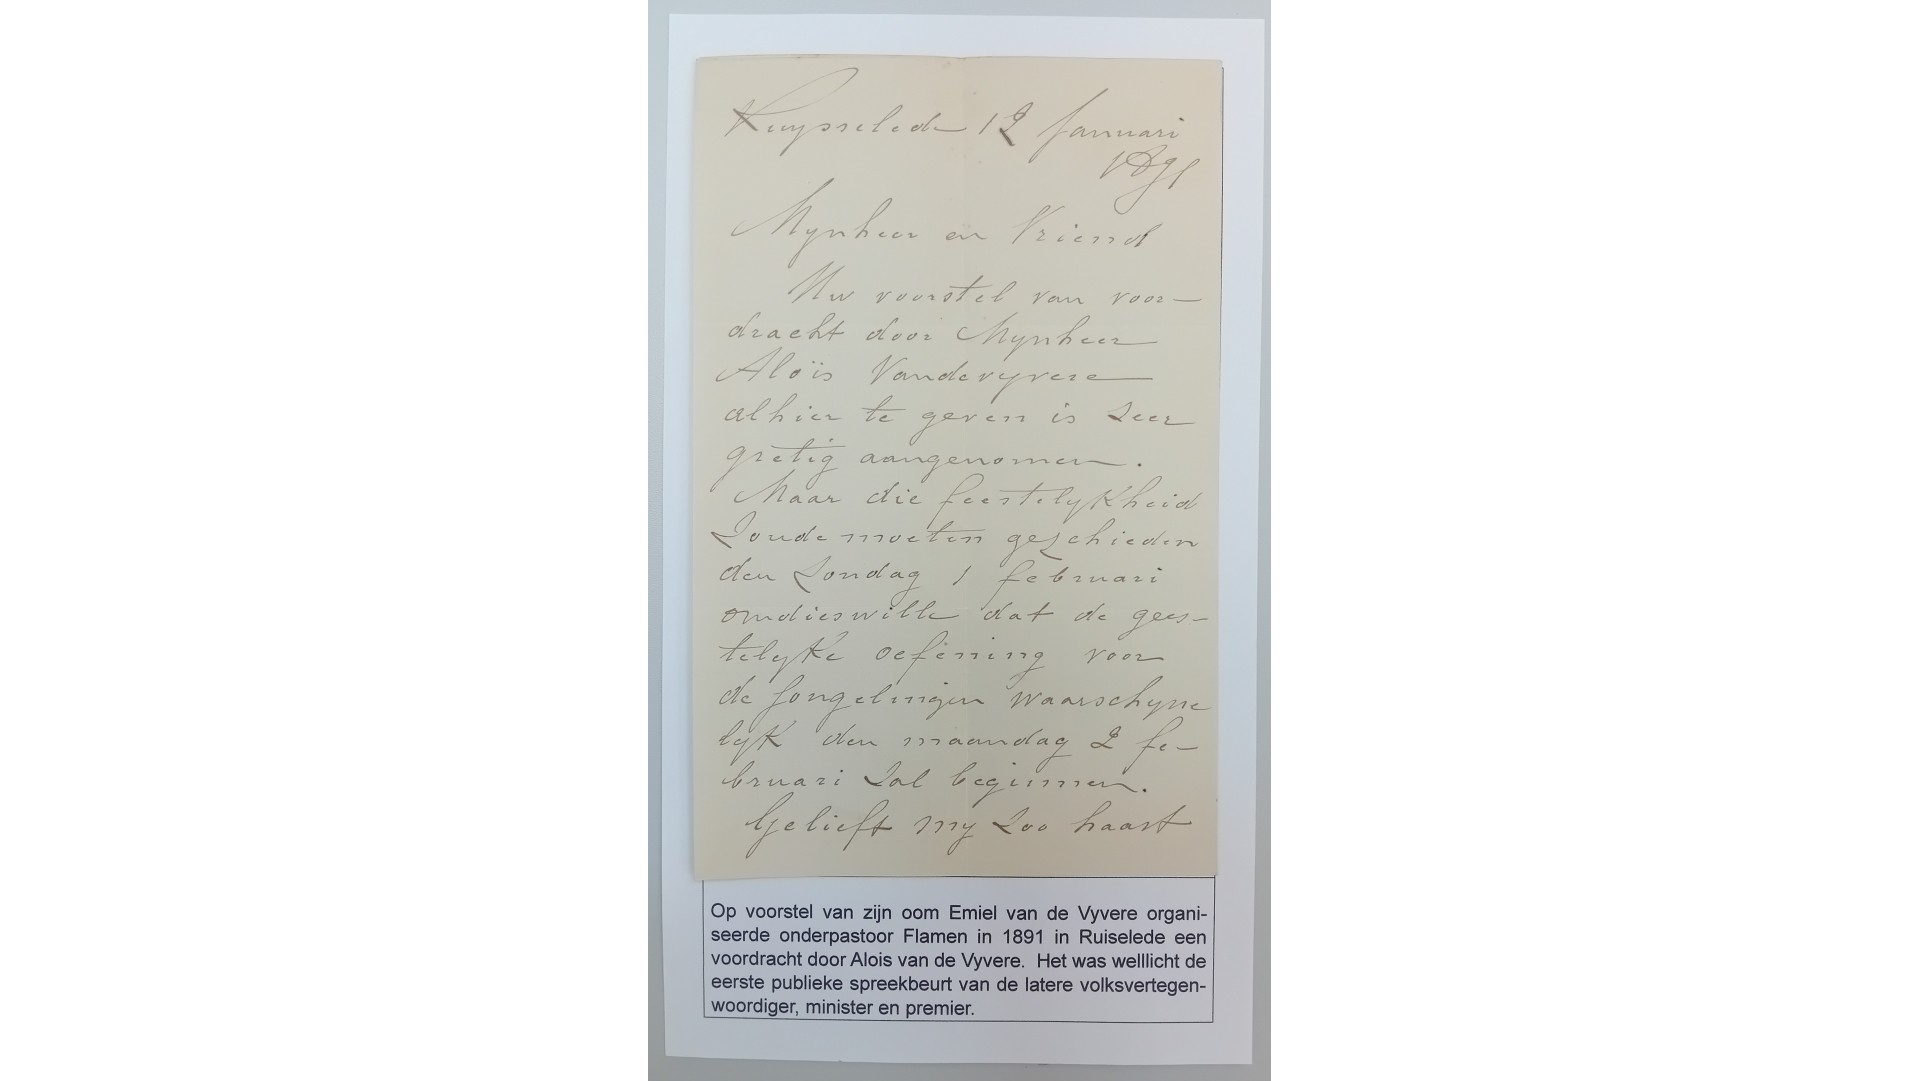 Ruysselede 12 Januari
1891
Mynheer en Vriend
Uw voorstel van voor-
dracht door Mynheer
Aloïs Vandevyvere
alhier te geven is zeer
gretig aangenomen.
Maar die feestelykheid
zoude moeten geschieden
den zondag 1 februari
omdieswille dat de gees-
telyke oefening voor
de jongelingen waarschyne
lyk den maandag 2 fe-
bruari zal beginnen.
Gelieft my zoo haast
Op voorstel van zijn oom Emiel van de Vyvere organi-
seerde onderpastoor Flamen in 1891 in Ruiselede een
voordracht door Alois van de Vyvere. Het was welllicht de
eerste publieke spreekbeurt van de latere volksvertegen-
woordiger, minister en premier.